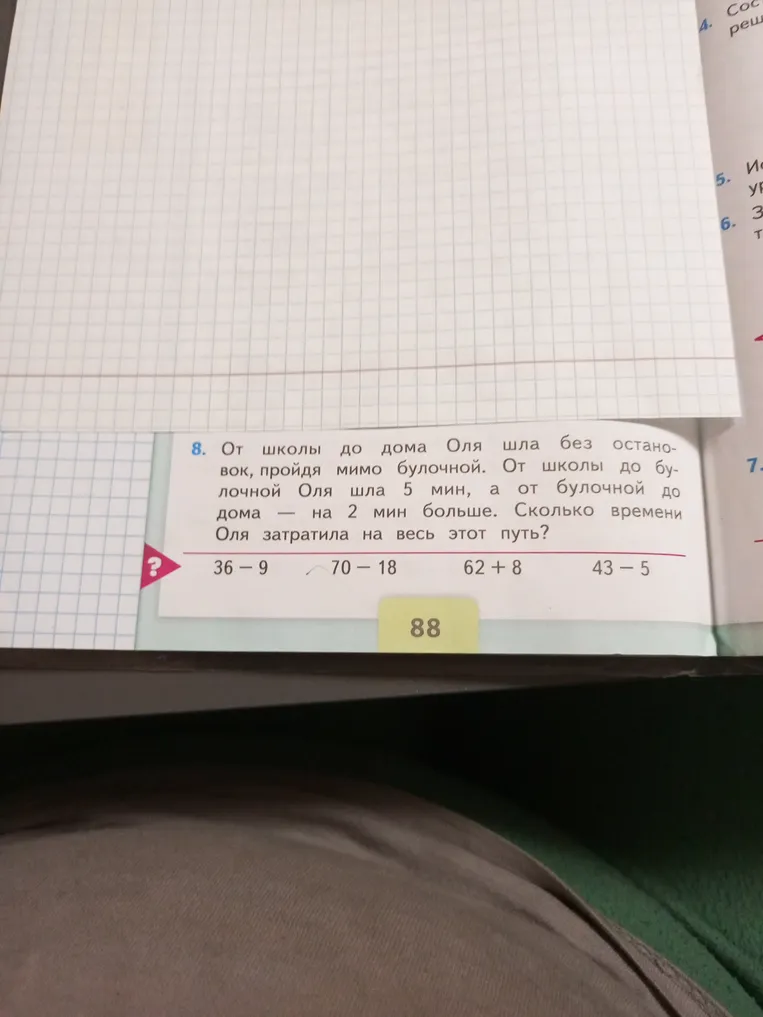 4. Сос
реш
5. И
ур
6. З
т
8. От школы до дома Оля шла без остано-
вок, пройдя мимо булочной. От школы до бу-
лочной Оля шла 5 мин, а от булочной до
дома — на 2 мин больше. Сколько времени
Оля затратила на весь этот путь?
7.
? 36 − 9 70 − 18 62 + 8 43 − 5
88